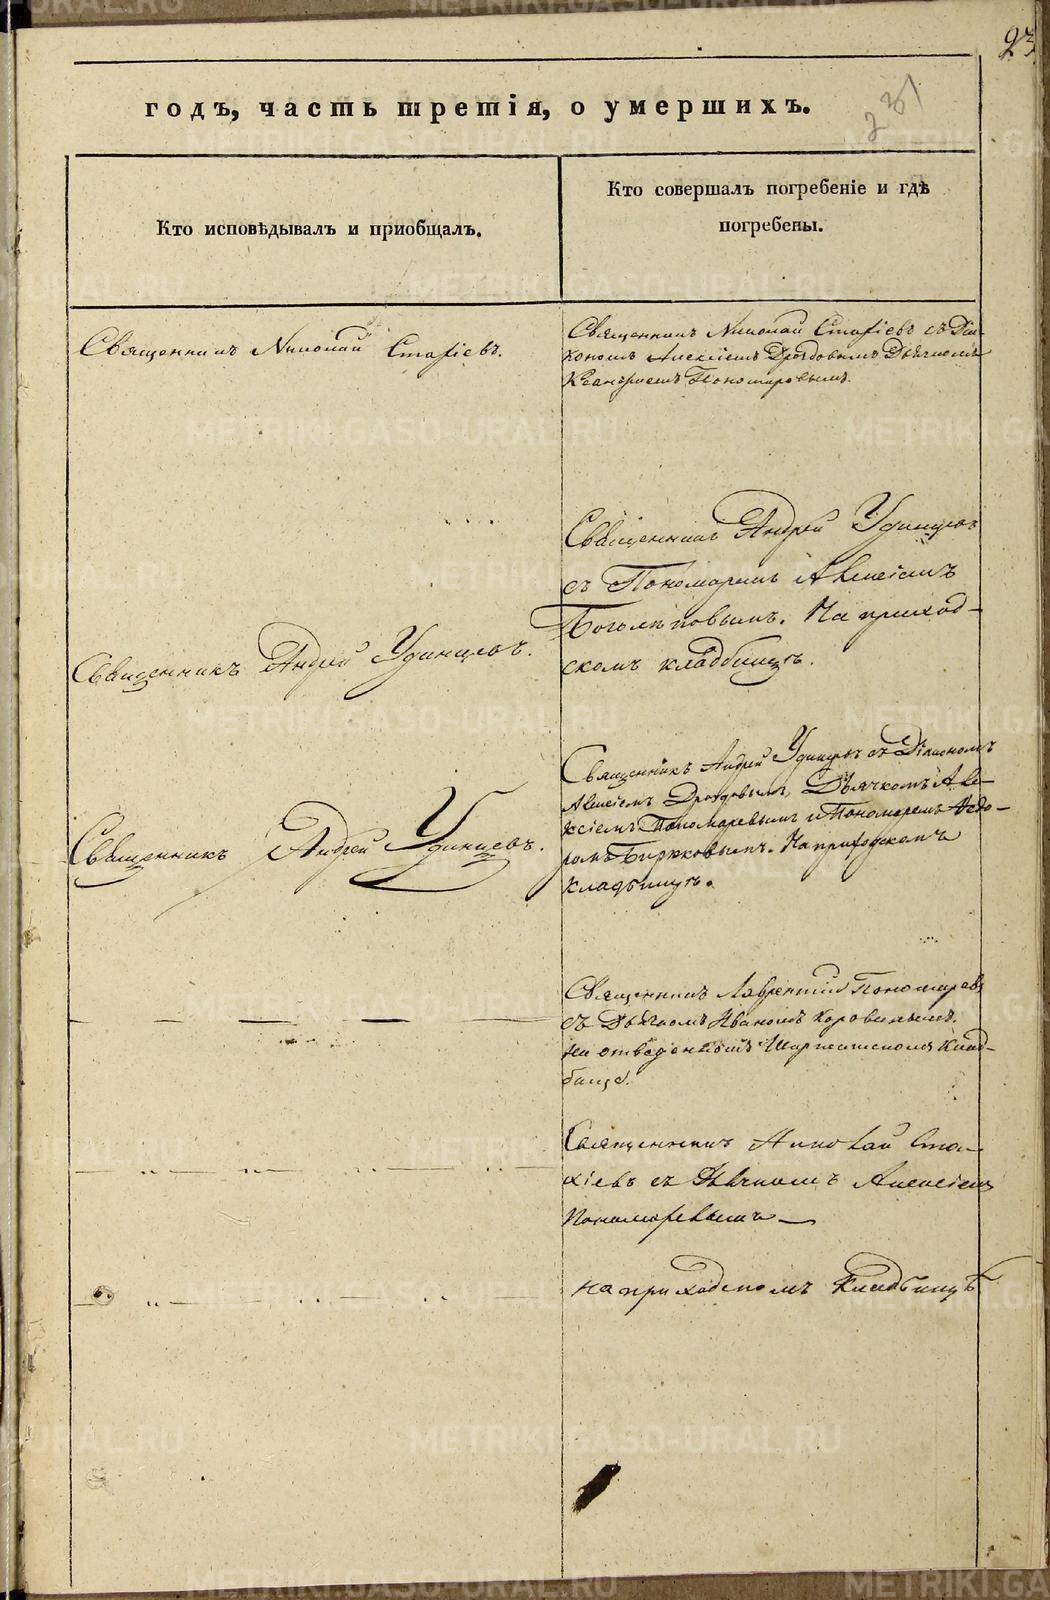 23
231
годъ, часть третія, о умершихъ.
Кто исповѣдывалъ и пріобщалъ.
Кто совершалъ погребеніе и гдѣ
погребены.
Священникъ Николай Стахіевъ.
Священникъ Николай Стахіевъ съ Діа-
кономъ Алексіемъ Дроздовымъ Дьячкомъ
Пономаревымъ.
Священникъ Андрей Удинцевъ.
Священникъ Андрей Удинцевъ
съ Пономаремъ Алексіемъ
Боголѣповымъ. На приход-
скомъ кладбищѣ.
Священникъ Андрей Удинцевъ.
Священникъ Андрей Удинцевъ съ Діакономъ
Алексіемъ Дроздовымъ, Дьячкомъ Але-
ксіемъ Пономаревымъ и Пономаремъ Ѳедо-
ромъ Бирюковымъ. На приходскомъ
кладбищѣ.
Священникъ Лаврентій Пономаревъ
съ Дьячкомъ Иваномъ Коровинымъ.
на отведенномъ кладбище.
Священникъ Николай Ста-
хіевъ съ Дьячкомъ Алексіемъ
Пономаревымъ
на приходскомъ Кладбищѣ
METRIKI.GASO-URAL.RU